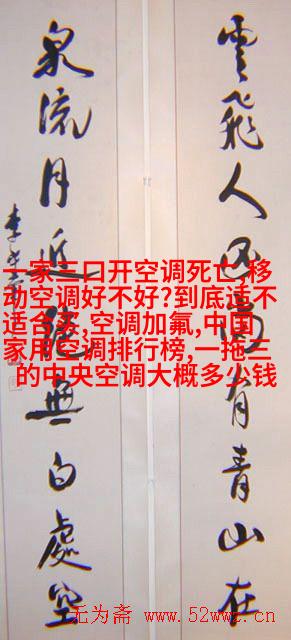 雲飛人有青山在
泉流月近無白處空
一家三口开空调死亡,移
动空调好不好?到底适不
适合买,空调加氟,中国
家用空调排行榜,一拖三
的中央空调大概多少钱
无为斋 www.52wwz.cn